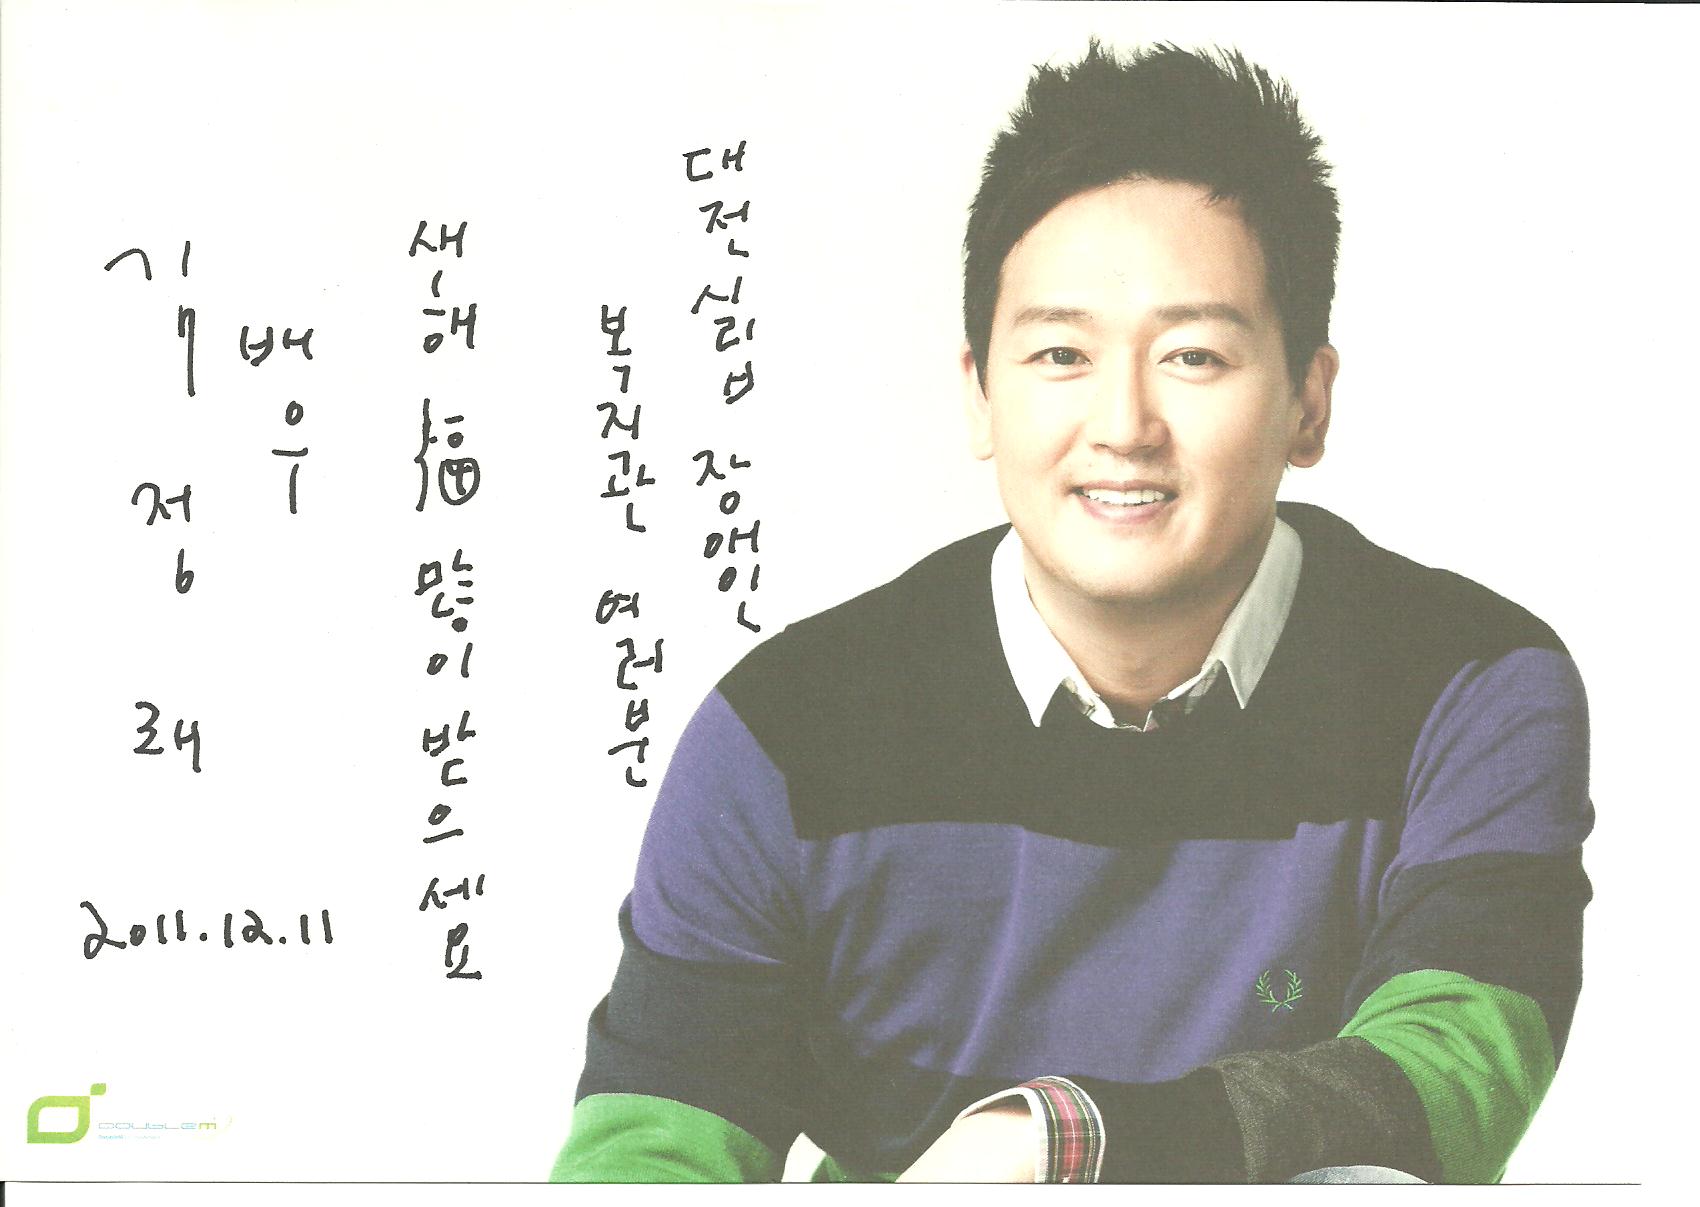 대전시립 장애인
복지관 여러분
새해 福 많이 받으세요
배우
김정태
2011.12.11
DOUBLEM